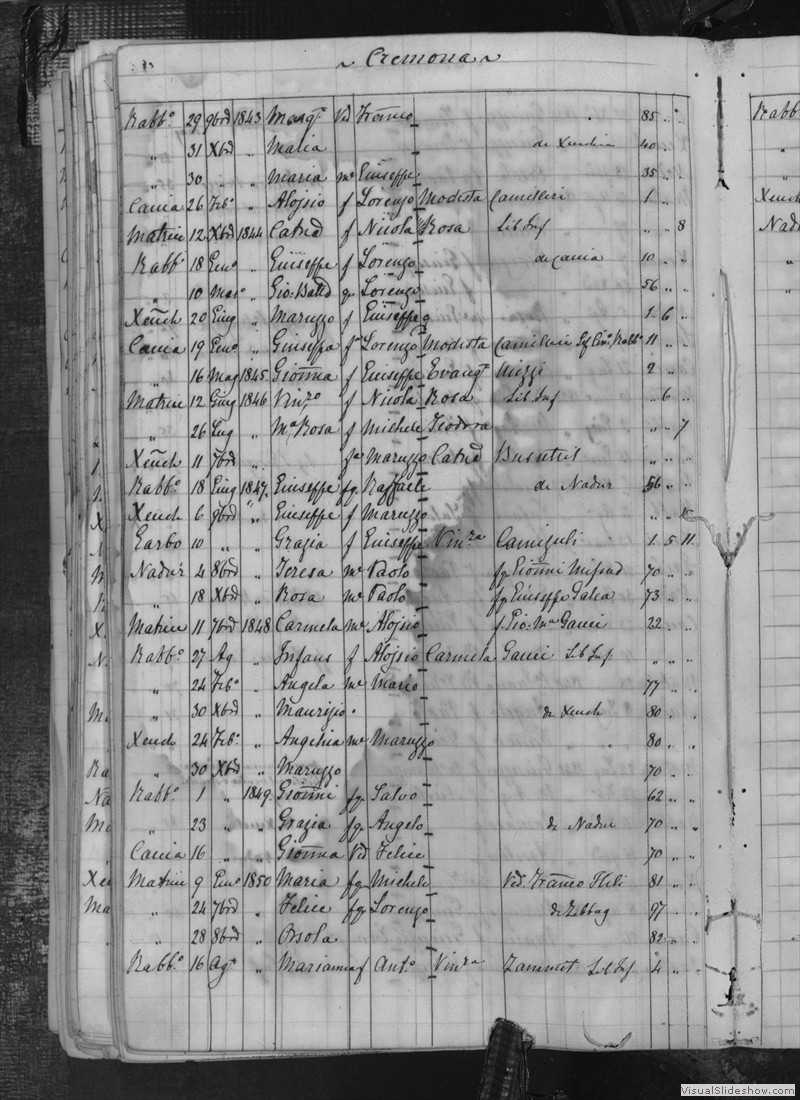 ~ Cremona ~
Rabb.o 29 9brd 1843 Marg.t Vd Franco 85 " "
" 31 Xbrd " Maria de Xeuchia 40 " "
" 30 " " Maria me Giuseppe 35 " "
Cauia 26 Feb.o " Alojsio f Lorenzo Modesta Camilleri 1 " "
Matrice 12 Xbrd 1844 Catrid f Nicola Rosa Lib Inf " " 8
Rabb.o 18 Gen.o " Giuseppe f Lorenzo de Cauia 10 " "
" 10 Mar.o " Gio: Batt.d q. Lorenzo 56 " "
Xeuch 20 Giug " Maruzzo f Giuseppe 1 6 "
Cauia 19 Gen.o " Giuseppa f.a Lorenzo Modesta Camilleri Rabb.o 11 " "
" 16 Mag 1845 Gionna f Giuseppe Evang.t Mizzi 2 " "
Matrice 12 Giug 1846 Vinz.o f Nicola Rosa Lib Inf " 6 "
" 26 Lug " M.a Rosa f Michele Teodora " " 7
Xeuch 11 7brd " f.a Maruzzo Catrid Busuttil " " "
Rabb.o 18 Giug 1847. Giuseppe fq. Raffaele de Nadur 56 " "
Xeuch 6 9brd " Giuseppe f Maruzzo " "
Garbo 10 " " Grazia f Giuseppe Vinz.a Camizuli 1 5 11
Nadur 4 8brd " Teresa me Paolo fq Gionni Mifsud 70 " "
" 18 Xbrd " Rosa me Paolo fq Giuseppe Galea 73 " "
Matrice 11 7brd 1848 Carmela me Alojsio f. Gio: M.a Gauci 22 " "
Rabb.o 27 Ag " Infans f Alojsio Carmela Gauci Lib Inf " " "
" 24 Feb.o " Angela me Mario 77 " "
" 30 Xbrd " Maurizio de Xeuch 80 " "
Xeuch 24 Feb.o " Me Maruzzo 80 " "
" 30 Xbrd " Maruzzo 70 " "
Rabb.o 1 " 1849. Gionni fq Salvo 62 " "
" 23 " " Grazia fq. Angelo de Nadur 70 " "
Cauia 16 " " Gionna Vd Felice 70 " "
Matrice 9 Gen.o 1850 Maria fq Michele Vd. Franco Theli 81 " "
" 24 7brd " Felice fq Lorenzo de Zebbug 97 " "
" 28 8brd " Orsola 82 " "
Rabb.o 16 Ag.o " Marianna f Ant.o Vinz.a Zammit Lib Inf 4 " "
Rabb
Xeuch
Nadu
VisualSlideshow.com